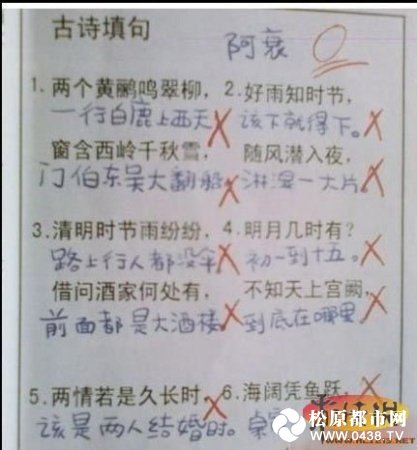 古诗填句
阿衰 0
1. 两个黄鹂鸣翠柳， 2. 好雨知时节，
一行白鹿上西天 该下就得下。
窗含西岭千秋雪， 随风潜入夜，
门伯东吴大翻船 淋湿一大片
3. 清明时节雨纷纷， 4. 明月几时有？
路上行人都没伞 初一到十五。
借问酒家何处有， 不知天上宫阙，
前面都是大酒楼 到底在哪里
5. 两情若是久长时， 6. 海阔凭鱼跃，
该是两人结婚时。
松原都市网
www.0438.TV